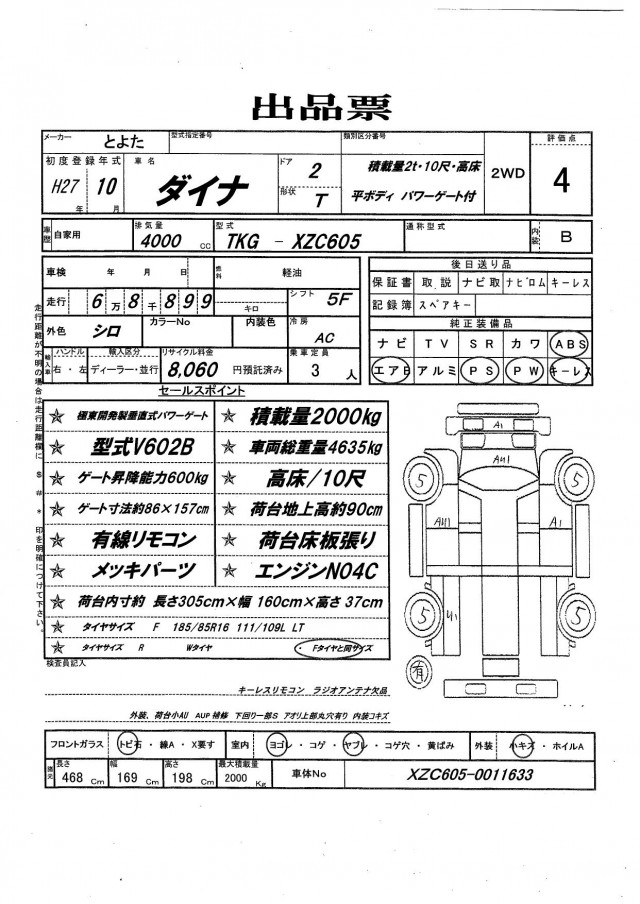 出品票
メーカー とよた 型式指定番号 類別区分番号 評価点
初度登録年式 車名 ドア 2 積載量2t・10尺・高床 2WD 4
H27 年 10 月 ダイナ 形状 T 平ボディ パワーゲート付
車歴 自家用 排気量 4000 cc 型式 TKG - XZC605 通称型式 内装 B
車検 年 月 日 燃料 軽油 後日送り品
保証書 取説 ナビ取 ナビロム キーレス
走行 6万8千899 キロ シフト 5F 記録簿 スペアキー
外色 シロ カラーNo 内装色 冷房 AC 純正装備品
ナビ TV SR カワ ABS
輸入車 ハンドル 右・左 輸入区分 ディーラー・並行 リサイクル料金 8,060 円預託済み 乗車定員 3 人 エアB アルミ PS PW キーレス
走行距離が不明の場合は走行距離欄に $ # * 印を明確につけて下さい。
セールスポイント
極東開発製垂直式パワーゲート 積載量2000kg
型式V602B 車両総重量4635kg
ゲート昇降能力600kg 高床/10尺
ゲート寸法約86×157cm 荷台地上高約90cm
有線リモコン 荷台床板張り
メッキパーツ エンジンN04C
荷台内寸約 長さ305cm×幅 160cm×高さ 37cm
タイヤサイズ F 185/85R16 111/109L LT
タイヤサイズ R Wタイヤ ・Fタイヤと同サイズ
A1
AU1
5 5
AU1 A1
5 U1 5
有
検査員記入
キーレスリモコン ラジオアンテナ欠品
外装、荷台小AU AUP補修 下回り一部S アオリ上部丸穴有り 内装コキズ
フロントガラス トビ石・線A・X要す 室内 ヨゴレ・コゲ・ヤブレ・コゲ穴・黄ばみ 外装 小キズ・ホイルA
長さ 468 Cm 幅 169 Cm 高さ 198 Cm 最大積載量 2000 Kg 車体No XZC605-0011633